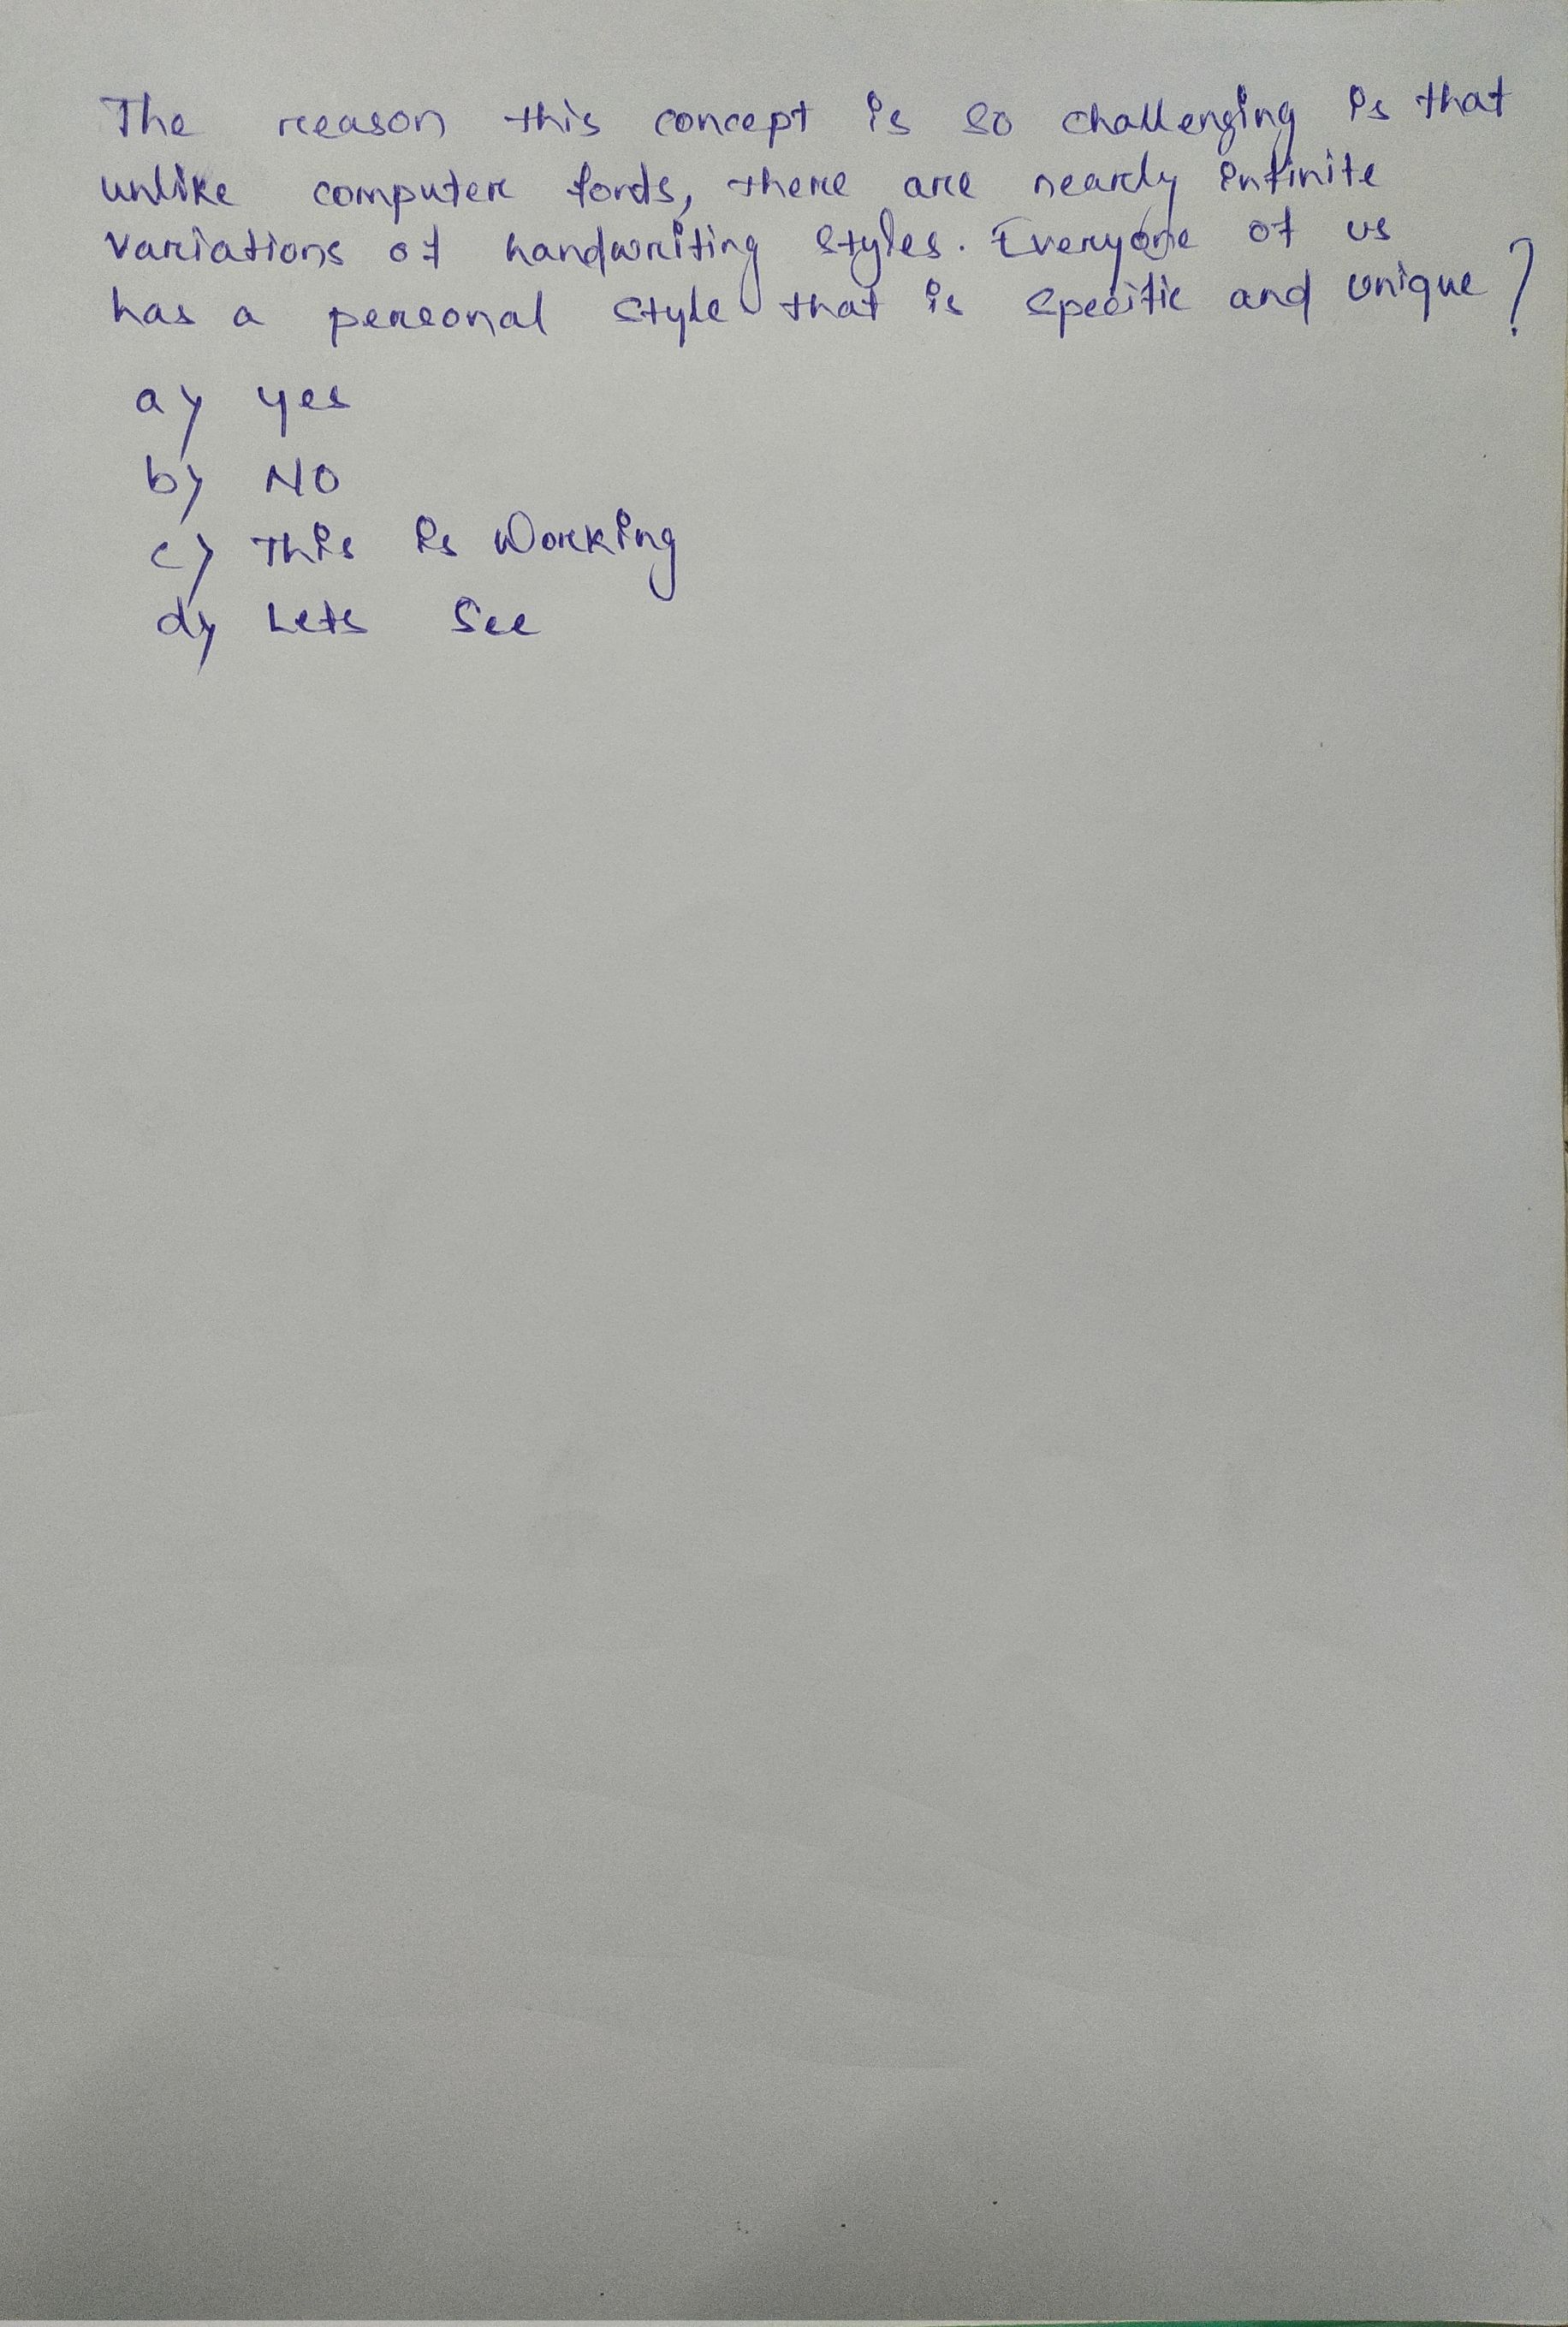 The reason this concept is so challenging is that
unlike computer fords, there are nearly infinite
variations of handwriting styles. Everyone of us
has a personal style that is specific and unique?
a) yes
b) NO
c) This is Working
d) Lets See